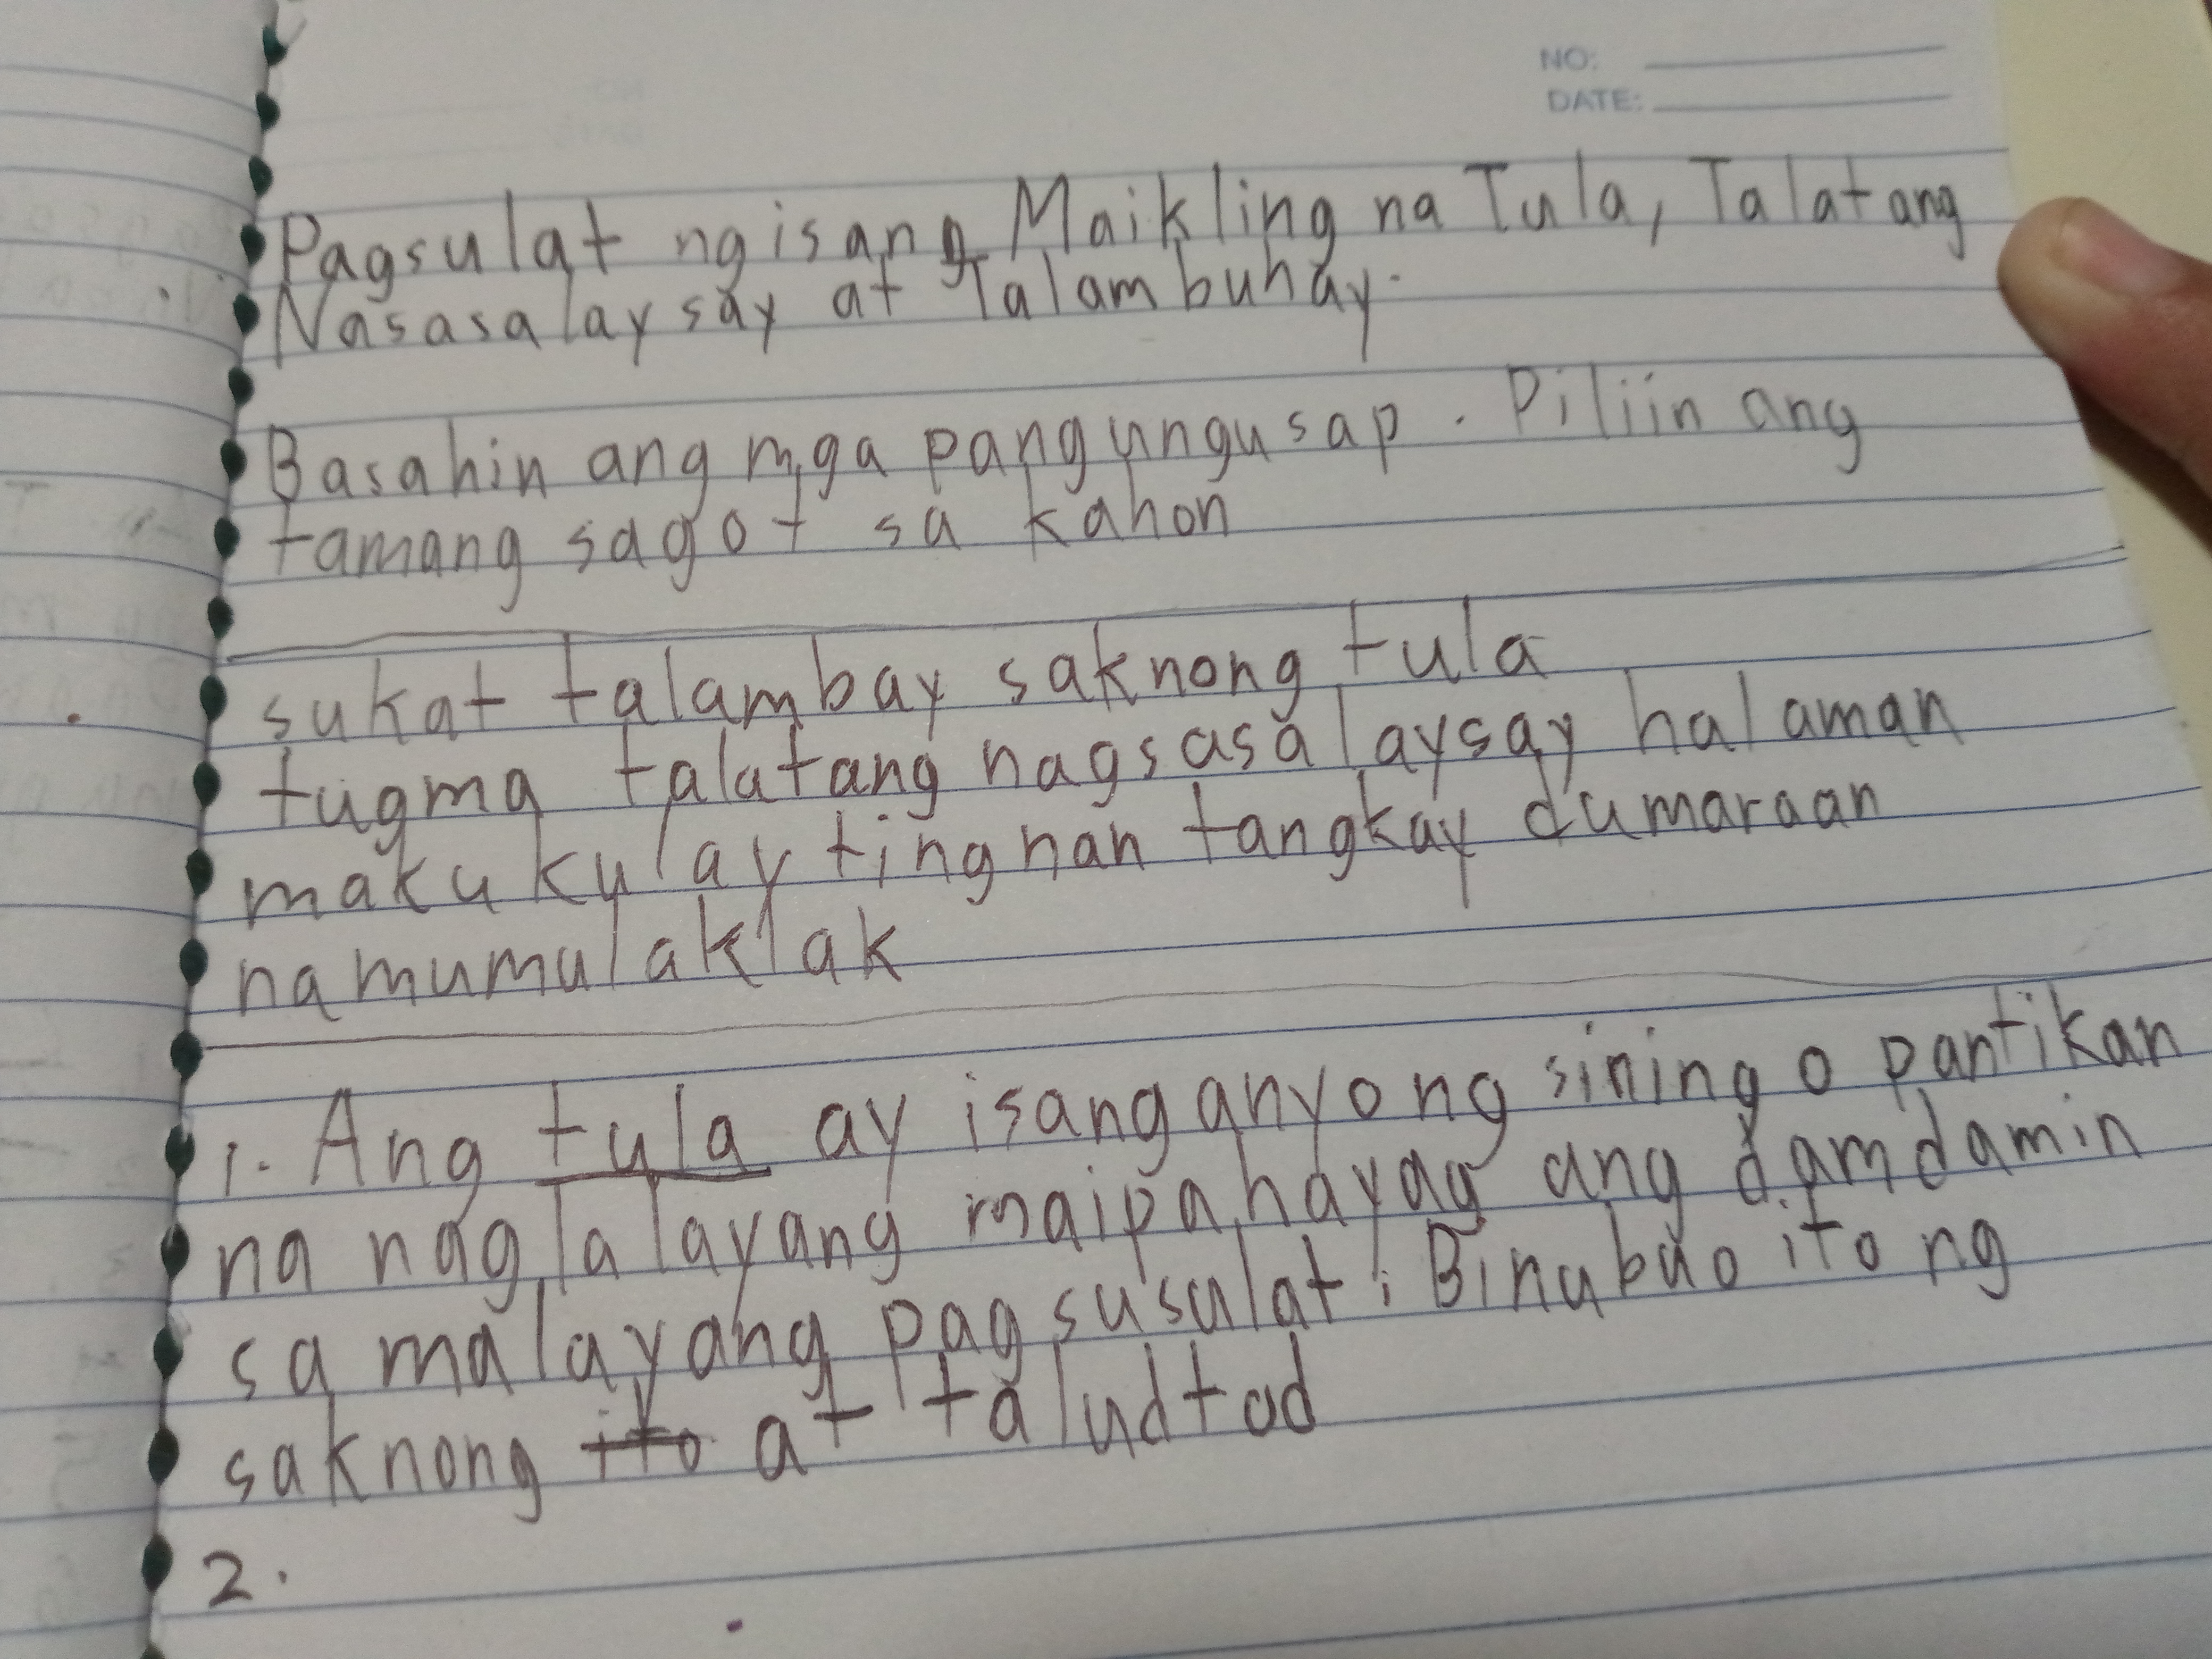 NO:
DATE:
Pagsulat ng isang Maikling na Tula, Talatang
Nasasalaysay at Talambuhay.
Basahin ang mga pangungusap. Piliin ang
tamang sagot sa kahon
sukat talambay saknong tula
tugma talatang nagsasalaysay halaman
makukulay tingnan tangkay dumaraan
namumulaklak
1. Ang tula ay isang anyong sining o pantikan
na naglalayang maipahayag ang damdamin
sa malayang pagsusulat. Binubuo ito ng
saknong ito at taludtod
2.